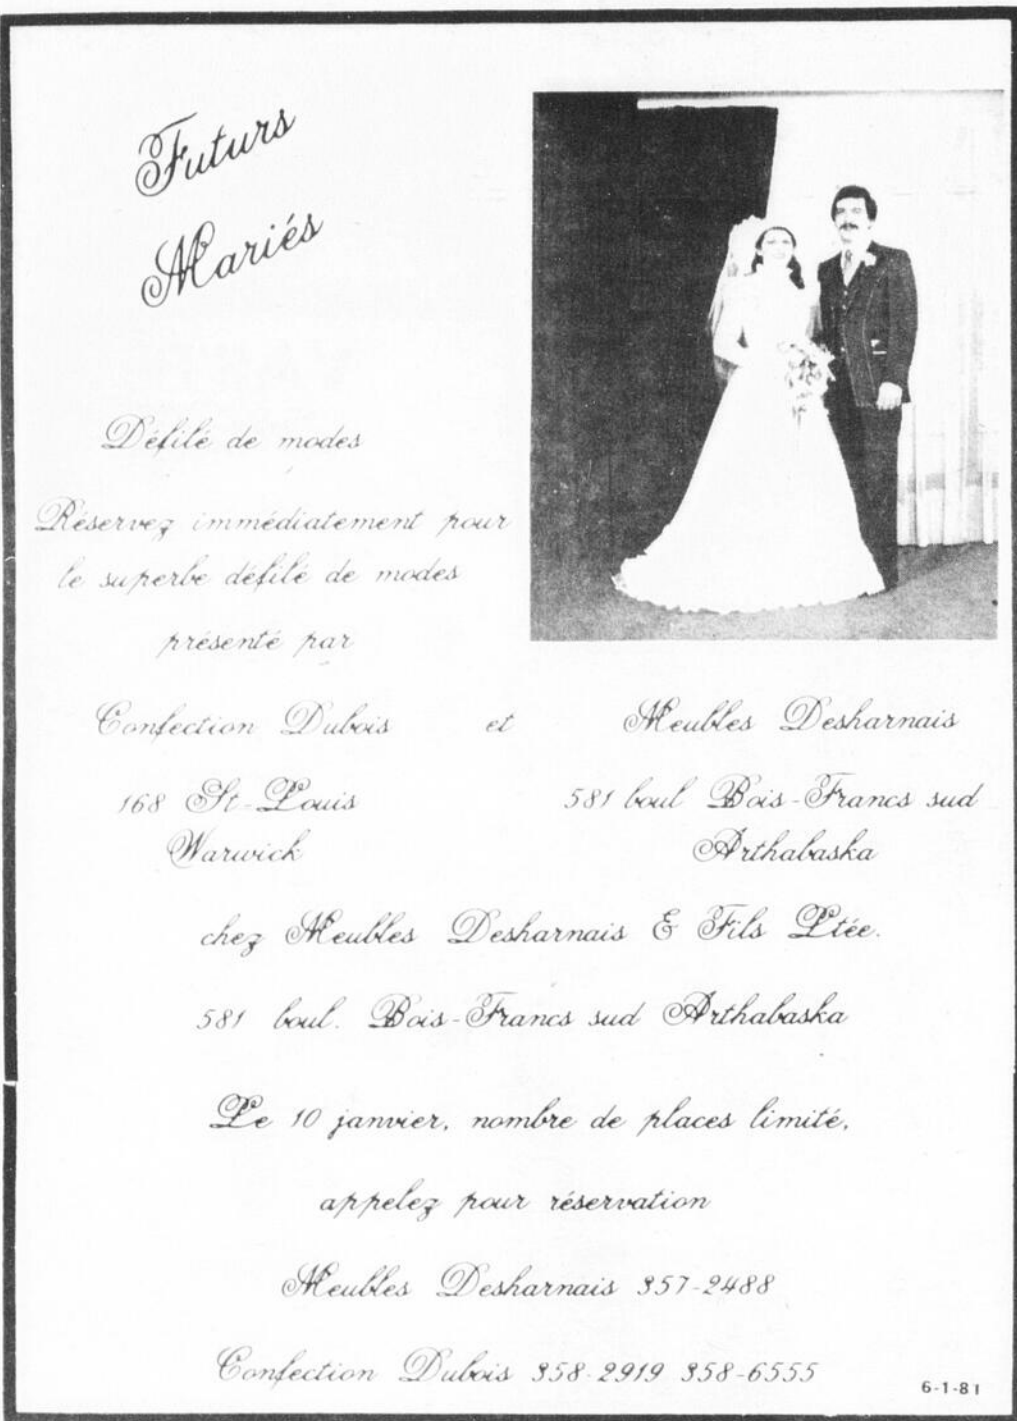 Futurs
Mariés
Défilé de modes
Réservez immédiatement pour
le superbe défilé de modes
présenté par
Confection Dubois et Meubles Desharnais
168 St-Louis 581 boul Bois-Francs sud
Warwick Arthabaska
chez Meubles Desharnais & Fils Ltée.
581 boul. Bois-Francs sud Arthabaska
Le 10 janvier, nombre de places limité,
appelez pour réservation
Meubles Desharnais 357-2488
Confection Dubois 358-2919 358-6555
6-1-81